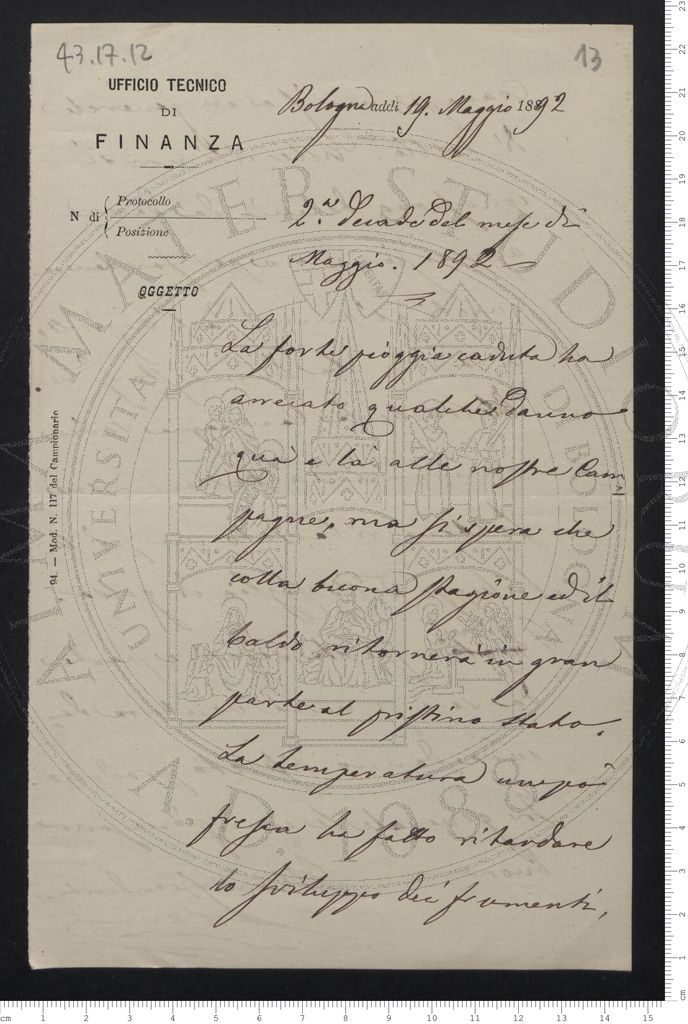 43.17.12
13
UFFICIO TECNICO
DI
FINANZA
Bologna addì 19. Maggio 1892
N di { Protocollo
Posizione
OGGETTO
2.a Decade del mese di
Maggio. 1892
La forte pioggia caduta ha
arrecato qualche danno
quà e là alle nostre Cam
pagne, ma si spera che
colla buona stagione ed il
Caldo ritornerà in gran
parte al pristino stato.
La temperatura un pò
fresca ha fatto ritardare
lo sviluppo dei frumenti,
94 — Mod. N. 117 del Campionario
ALMA MATER STUDIORUM
UNIVERSITA DI BOLOGNA
A.D. 1088